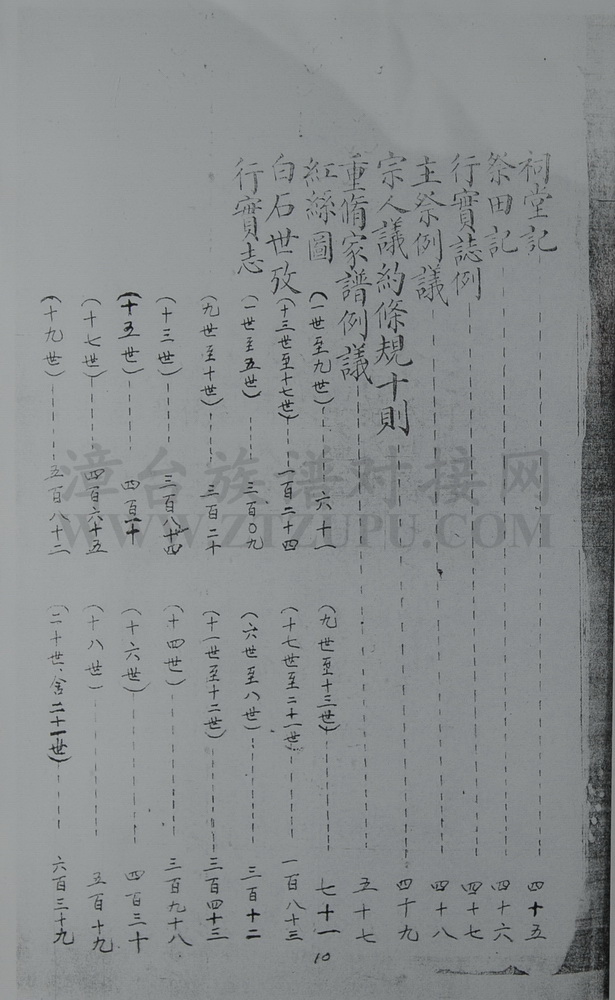 祠堂記 四十五
祭田記 四十六
行實誌例 四十七
主祭例議 四十八
宗人議約條規十則 四十九
重脩家譜例議 五十七
紅絲圖 (一世至九世) 六十一 (九世至十三世) 七十一
(十三世至十七世) 一百二十四 (十七世至二十一世) 一百八十三
白石世攷
行實志 (一世至五世) 三百〇九 (六世至八世) 三百十二
(九世至十世) 三百二十 (十一世至十二世) 三百四十三
(十三世) 三百八十四 (十四世) 三百九十八
(十五世) 四百十 (十六世) 四百三十
(十七世) 四百六十五 (十八世) 五百十九
(十九世) 五百八十二 (二十世、含二十一世) 六百三十九
10
漳台族谱对接网
WWW.ZTZUPU.COM